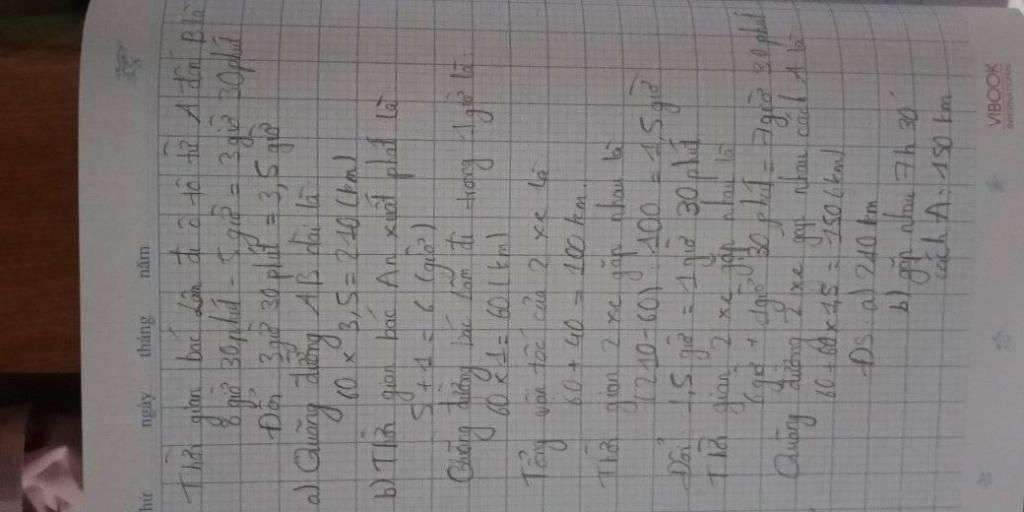 thứ ngày tháng năm
Thời gian bác Lâm đi ô tô từ A đến B là
8 giờ 30 phút - 5 giờ = 3 giờ 30 phút
Đổi 3 giờ 30 phút = 3,5 giờ
a) Quãng đường AB dài là
60 x 3,5 = 210 (km)
b) Thời gian bác An xuất phát là
5 + 1 = 6 (giờ)
Quãng đường bác Lâm đi trong 1 giờ là
60 x 1 = 60 (km)
Tổng vận tốc của 2 xe là
60 + 40 = 100 km.
Thời gian 2 xe gặp nhau là
(210 - 60) : 100 = 1,5 giờ
Đổi 1,5 giờ = 1 giờ 30 phút
Thời gian 2 xe gặp nhau là
6 giờ + 1 giờ 30 phút = 7 giờ 30 phút
Quãng đường 2 xe gặp nhau cách A là
60 + 60 x 1,5 = 150 (km)
ĐS: a) 210 km
b) gặp nhau 7h 30'
cách A: 150 km
VIBOOK